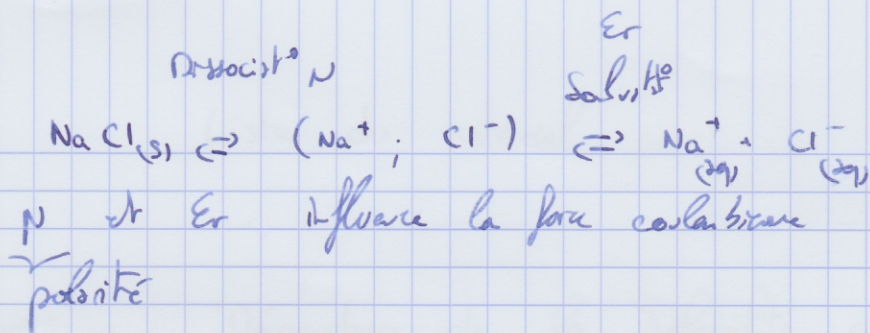 Er
Dissociat° N Solvat°
NaCl(s) ⇌ (Na+ ; Cl-) ⇌ Na+(aq) + Cl-(aq)
N et Er influence la force coulombienne
polarité